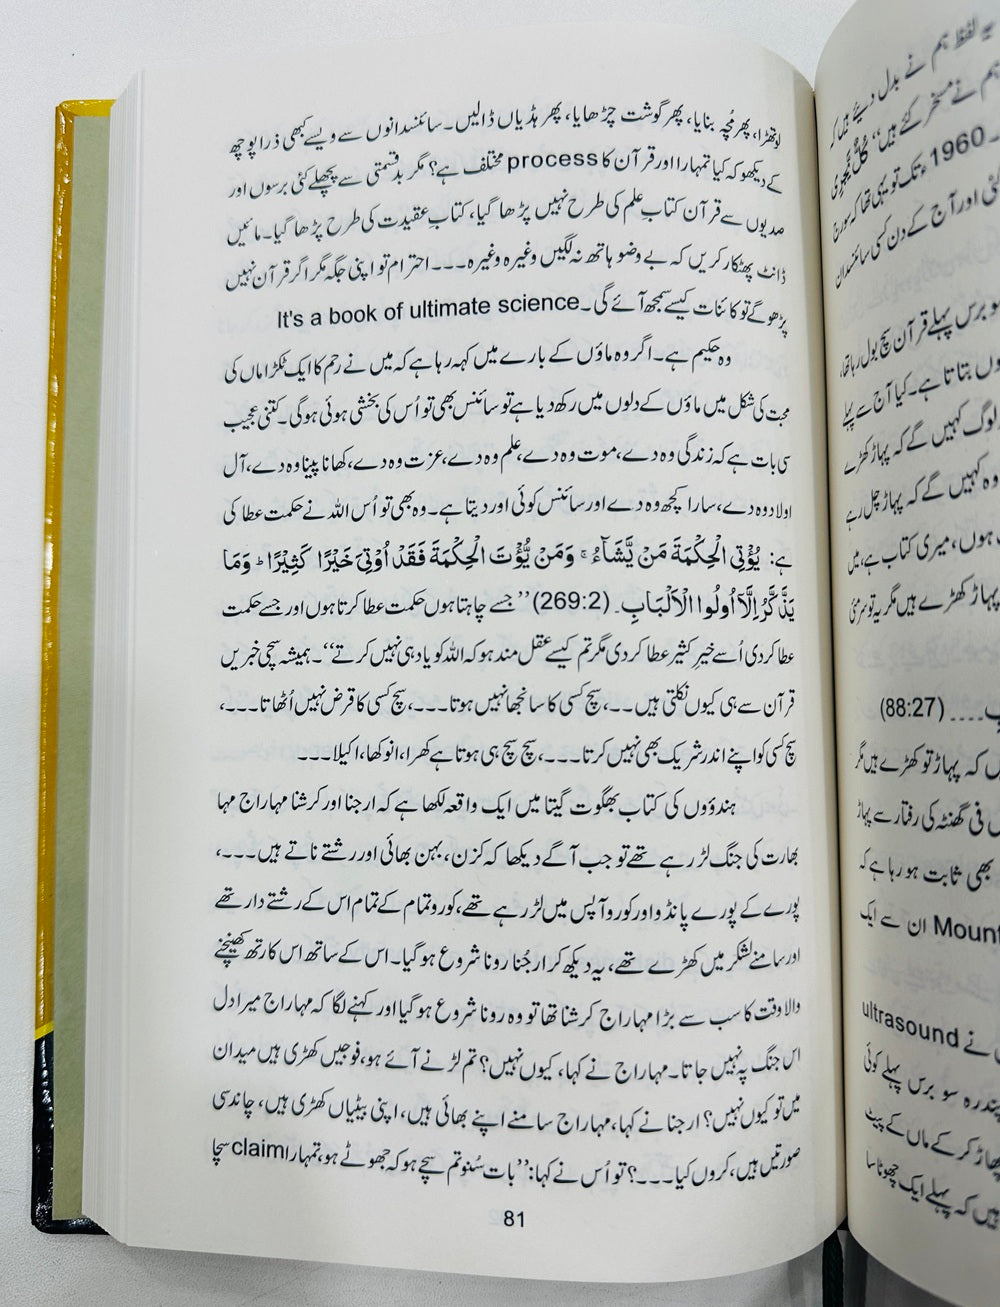 لوتھڑا، پھر مُچّہ بنایا، پھر گوشت چڑھایا، پھر ہڈیاں ڈالیں۔ سائنسدانوں سے ویسے کبھی ذرا پوچھ
کے دیکھو کہ کیا تمہارا اور قرآن کا process مختلف ہے؟ مگر بدقسمتی سے پچھلے کئی برسوں اور
صدیوں سے قرآن کتابِ علم کی طرح نہیں پڑھا گیا، کتابِ عقیدت کی طرح پڑھا گیا۔ مائیں
ڈانٹ پھٹکار کریں کہ بے وضو ہاتھ نہ لگیں وغیرہ وغیرہ۔۔۔ احترام تو اپنی جگہ مگر اگر قرآن نہیں
پڑھو گے تو کائنات کیسے سمجھ آئے گی۔ It's a book of ultimate science
وہ حکیم ہے۔ اگر وہ ماؤں کے بارے میں کہہ رہا ہے کہ میں نے رحم کا ایک ٹکڑا ماں کی
محبت کی شکل میں ماؤں کے دلوں میں رکھ دیا ہے تو سائنس بھی تو اُس کی بخشی ہوئی ہوگی۔ کتنی عجیب
سی بات ہے کہ زندگی وہ دے، موت وہ دے، علم وہ دے، عزت وہ دے، کھانا پینا وہ دے، آل
اولاد وہ دے، سارا کچھ وہ دے اور سائنس کوئی اور دیتا ہے۔ وہ بھی تو اُس اللہ نے حکمت عطا کی
ہے: يُؤْتِي الْحِكْمَةَ مَنْ يَّشَآءُ ۚ وَمَنْ يُّؤْتَ الْحِكْمَةَ فَقَدْ اُوْتِيَ خَيْرًا كَثِيْرًا ؕ وَمَا
يَذَّكَّرُ اِلَّآ اُولُوا الْاَلْبَابِ۔ (269:2) ’’جسے چاہتا ہوں حکمت عطا کرتا ہوں اور جسے حکمت
عطا کردی اُسے خیرِ کثیر عطا کردی مگر تم کیسے عقل مند ہو کہ اللہ کو یاد ہی نہیں کرتے‘‘۔ ہمیشہ سچی خبریں
قرآن سے ہی کیوں نکلتی ہیں۔۔۔، سچ کسی کا سانجھا نہیں ہوتا۔۔۔، سچ کسی کا قرض نہیں اُٹھاتا۔۔۔،
سچ کسی کو اپنے اندر شریک بھی نہیں کرتا۔۔۔، سچ سچ ہی ہوتا ہے کھرا، انوکھا، اکیلا۔۔۔
ہندوؤں کی کتاب بھگوت گیتا میں ایک واقعہ لکھا ہے کہ ارجنا اور کرشنا مہاراج مہا
بھارت کی جنگ لڑ رہے تھے تو جب آگے دیکھا کہ کزن، بہن بھائی اور رشتے ناتے ہیں۔۔۔،
پورے کے پورے پانڈو اور کورو آپس میں لڑ رہے تھے، کورو تمام کے تمام اس کے رشتے دار تھے
اور سامنے لشکر میں کھڑے تھے، یہ دیکھ کر ارجُنا رونا شروع ہوگیا۔ اس کے ساتھ اس کا رتھ کھینچنے
والا وقت کا سب سے بڑا مہاراج کرشنا تھا تو وہ رونا شروع ہوگیا اور کہنے لگا کہ مہاراج میرا دل
اس جنگ پہ نہیں جاتا۔ مہاراج نے کہا، کیوں نہیں؟ تم لڑنے آئے ہو، فوجیں کھڑی ہیں میدان
میں تو کیوں نہیں؟ ارجنا نے کہا، مہاراج سامنے اپنے بھائی ہیں، اپنی بیٹیاں کھڑی ہیں، چاند سی
صورتیں ہیں، کروں کیا۔۔۔؟ تو اُس نے کہا: ’’بات سُنو تم سچے ہو کہ جھوٹے ہو، تمہارا claim سچا
81
یہ لفظ ہم نے بدل دیئے ہیں کہ
ہم نے مسخر کئے ہیں‘‘ كُلٌّ يَّجْرِي
۔1960ء تک تو یہی تھا کہ سورج
گئی اور آج کے دن کسی سائنسدان
سو برس پہلے قرآن سچ بول رہا تھا،
بتاتا ہے۔ کیا آج سے پہلے
لوگ کہیں گے کہ پہاڑ کھڑے
وہ کہیں گے کہ پہاڑ چل رہے
ہوں، میری کتاب ہے، میں
پہاڑ کھڑے ہیں مگر یہ تو سرمئی
۔۔۔۔ (88:27)
کہ پہاڑ تو کھڑے ہیں مگر
فی گھنٹہ کی رفتار سے پہاڑ
بھی ثابت ہو رہا ہے کہ
Mount ان سے ایک
نے ultrasound
پندرہ سو برس پہلے کوئی
پھاڑ کر کے ماں کے پیٹ
ہیں کہ پہلے ایک چھوٹا سا